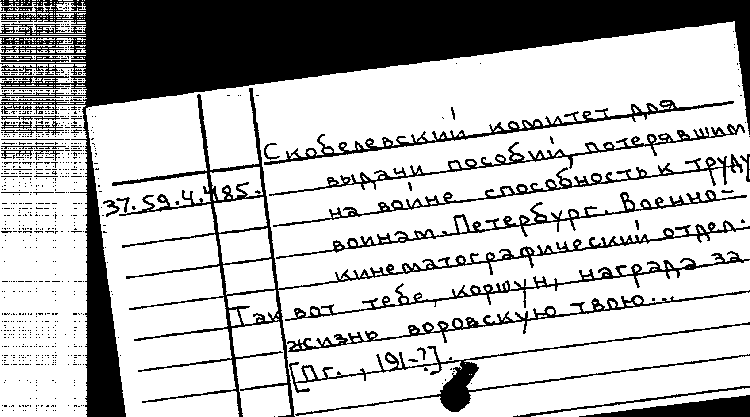 Скобелевский комитет для
37.59.4.485. выдачи пособий, потерявшим
на войне способность к труду
воинам. Петербург. Военно-
кинематографический отдел.
Так вот тебе, коршун, награда за
жизнь воровскую твою...
[Пг., 191-?].